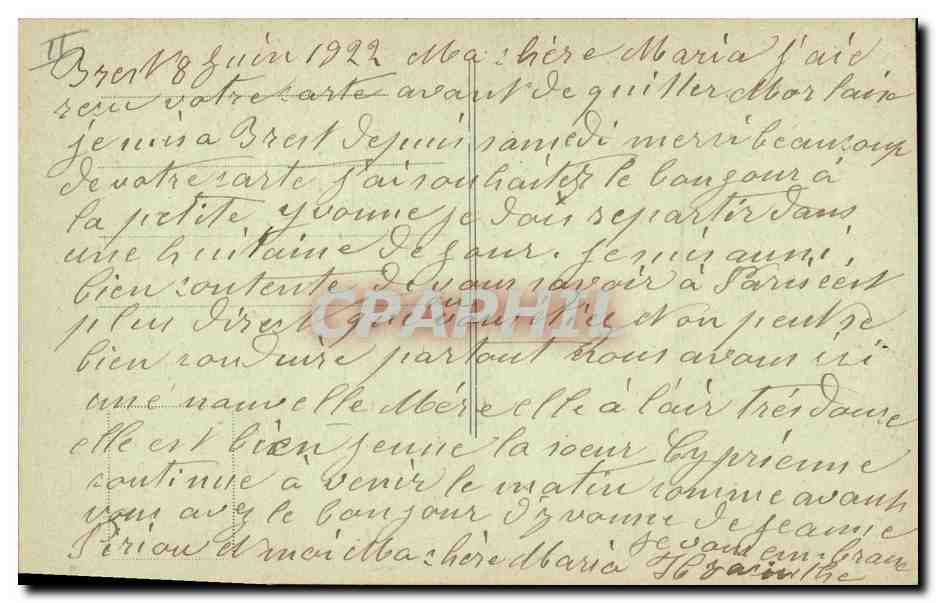 II
Brest 8 Juin 1922 Ma chère Maria j'aie
reçu votre carte avant de quitter Morlaix
je suis a Brest depuis samedi merci beaucoup
de votre carte j'ai souhaitez le bonjour à
la petite Yvonne je dois repartir dans
une huitaine de jour. je suis aussi
bien contente de vous savoir à Paris c'est
plus direct et on peut se
bien conduire partout nous avons ici
une nouvelle Mère elle à l'air très douce
elle est bien jeune la soeur Cyprienne
continue à venir le matin comme avant
vous avez le bonjour d'yvonne de Jeanne
Piriou et moi Ma chère Maria
je vous embrasse
Hyacinthe
CPAPHIL